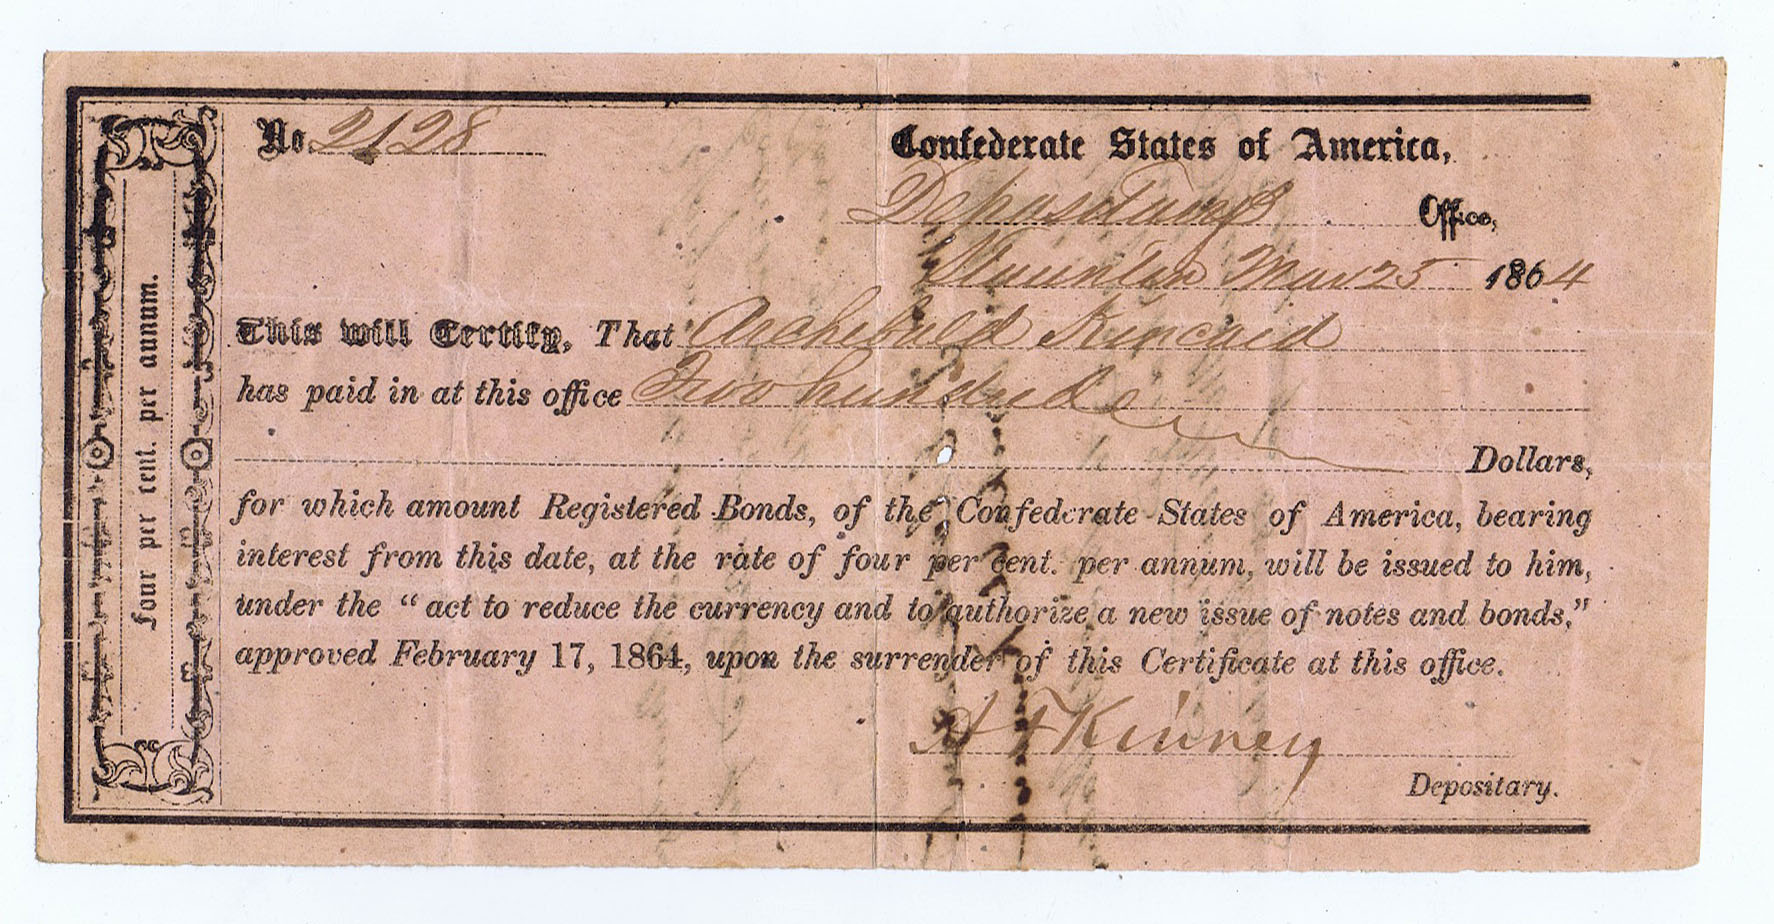 No. 2128
Confederate States of America,
Depositary's Office,
Staunton Mar 25 1864
This will Certify, That Archibald Kincaid
has paid in at this office Two hundred
Dollars,
for which amount Registered Bonds, of the Confederate States of America, bearing
interest from this date, at the rate of four per cent. per annum, will be issued to him,
under the “act to reduce the currency and to authorize a new issue of notes and bonds,”
approved February 17, 1864, upon the surrender of this Certificate at this office.
A F Kinney
Depositary.
Four per cent. per annum.